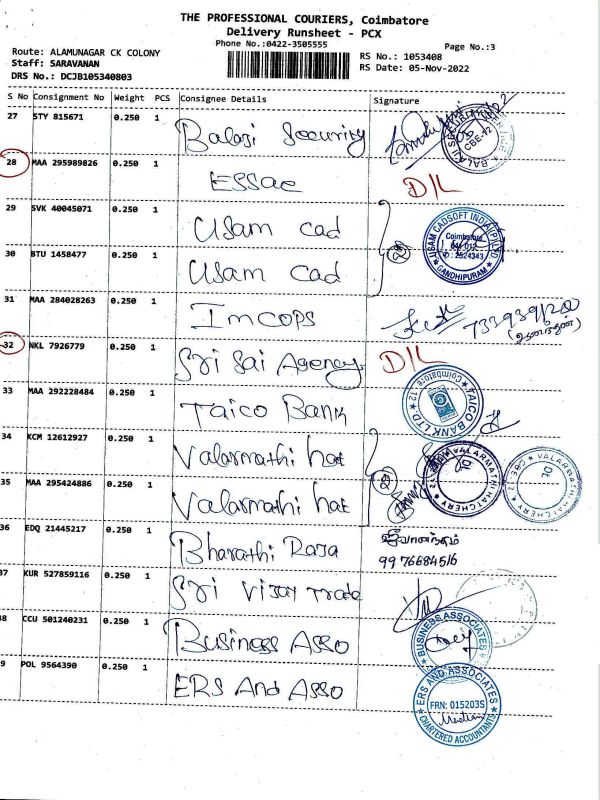 THE PROFESSIONAL COURIERS, Coimbatore
Delivery Runsheet - PCX
Phone No.:0422-3505555
Page No.:3
Route: ALAMUNAGAR CK COLONY
Staff: SARAVANAN
DRS No.: DCJB105340803
RS No.: 1053408
RS Date: 05-Nov-2022
S No Consignment No Weight PCS Consignee Details Signature
27 STY 815671 0.250 1 Balaji Security
28 MAA 295989826 0.250 1 ESSae D/L
29 SVK 40045071 0.250 1 Usam cad
30 BTU 1458477 0.250 1 Usam cad
2
USAM CADSOFT INDIA (P) LTD
Coimbatore
641 012
GANDHIPURAM
31 MAA 284028263 0.250 1 Imcops
32 NKL 7926779 0.250 1 Sri Sai Agency D/L
33 MAA 292228484 0.250 1 Taico Bank
TAICO BANK LTD
Coimbatore-12
34 KCM 12612927 0.250 1 Valarmathi hat
35 MAA 295424886 0.250 1 Valarmathi hat
2
VALARMATHI HATCHERY
VALARMATHI HATCHERY CBE-12
36 EDQ 21445217 0.250 1 Bharathi Raja
9976684516
37 KUR 527859116 0.250 1 Sri Vijay Trade
38 CCU 501240231 0.250 1 Business Asso
BUSINESS ASSOCIATES
39 POL 9564390 0.250 1 ERS And Asso
ERS AND ASSOCIATES
FRN: 015203S
CHARTERED ACCOUNTANTS